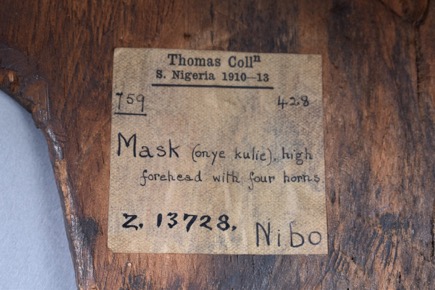 Thomas Collⁿ
S. Nigeria 1910-13
759 428
Mask (onye kulie). high
forehead with four horns
Z. 13728. Nibo